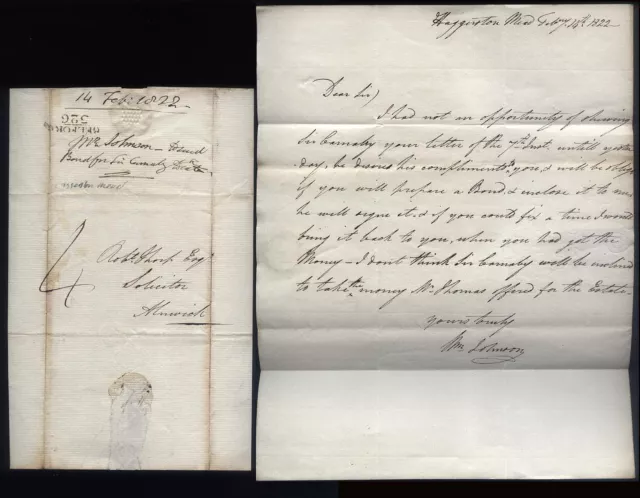 14 Feb: 1822
BELFORD
326
Mr Johnson –
Bond for Sir Carnaby
Robt Thorp Esqr
Solicitor
Alnwick
4
Haggerston Mead Feby 14th 1822
Dear Sir,
I had not an opportunity of shewing
Sir Carnaby your letter of the 7th Inst. untill yester
day, he desires his compliments to you, & will be oblig'd
if you will prepare a Bond, & inclose it to me,
he will signe it, & if you could fix a time I would
bring it back to you, when you had got the
Money – I don't think Sir Carnaby will be inclind
to take the money Mr Thomas offerd for the Estate.
yours truly
Wm Johnson